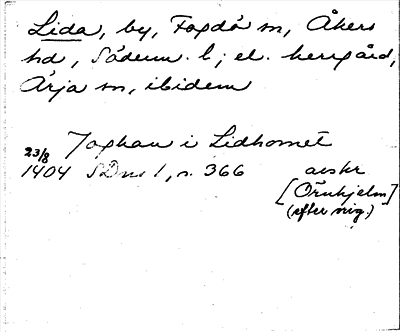 Lida, by, Fogdö sn, Åkers
hd, Söderm. l; el. herrgård,
Ärja sn, ibidem
Jophan i Lidhomet
23/8
1404 SDns 1, n. 366 avskr
[Örnhjelm]
(efter orig.)